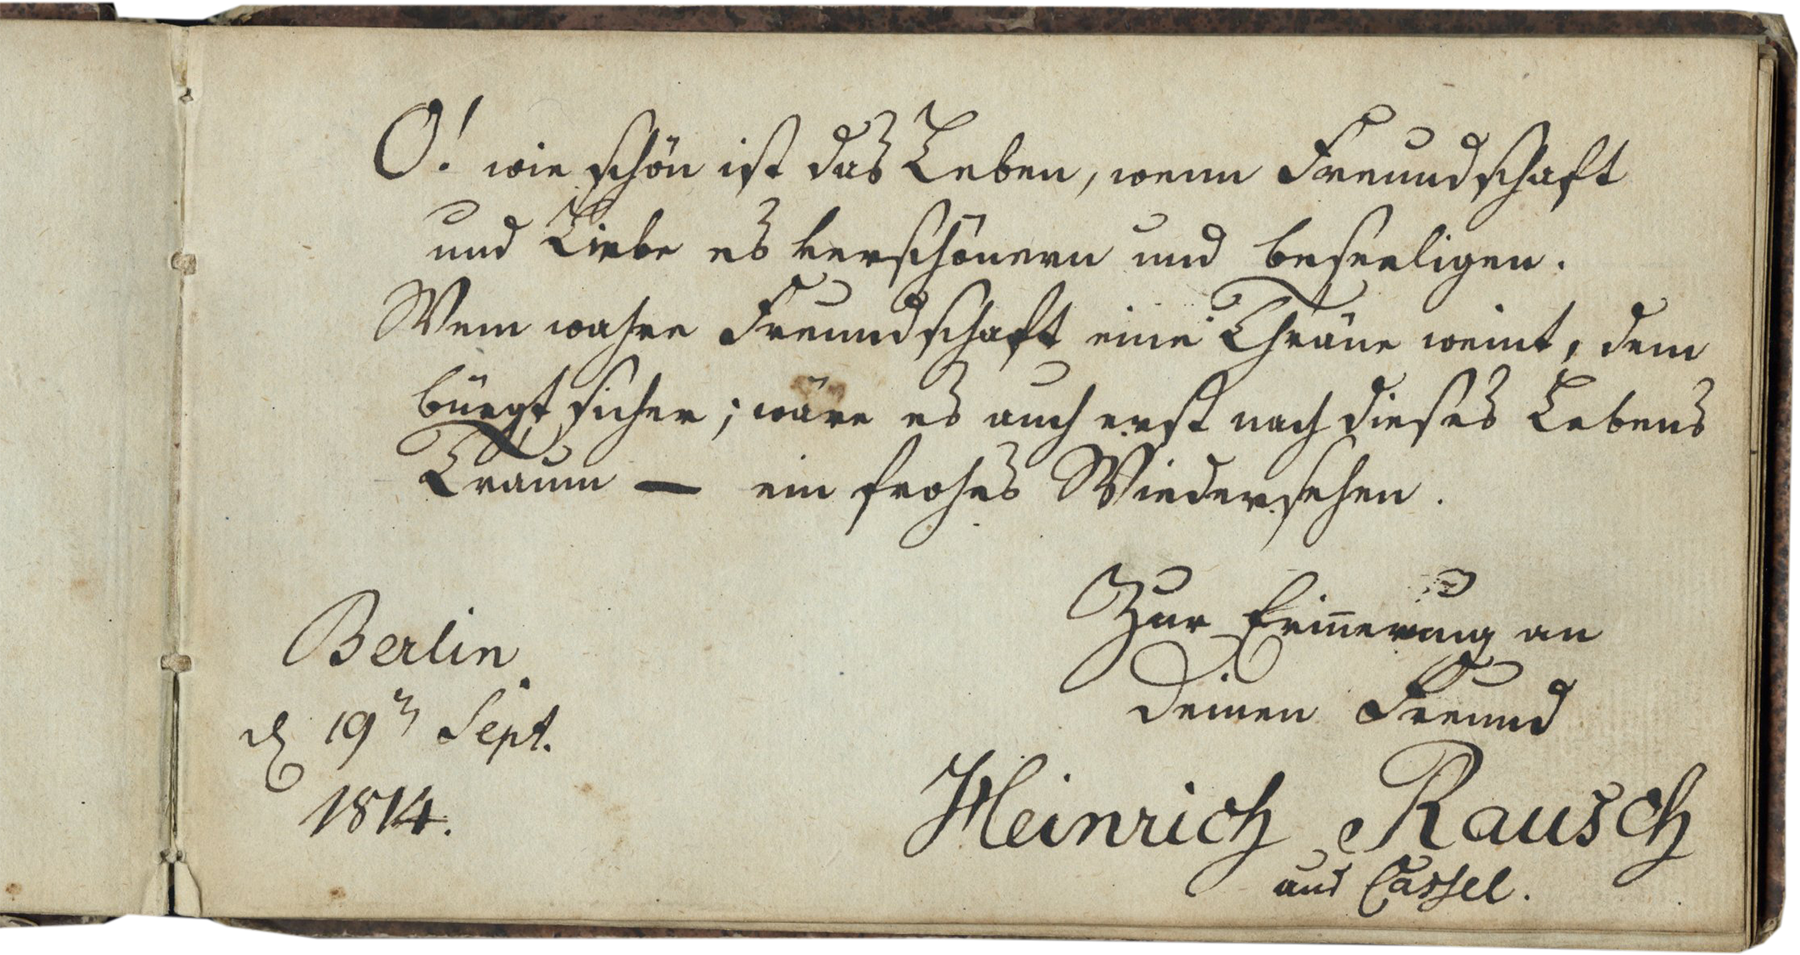 O! wie schön ist das Leben, wenn Freundschaft
und Liebe es verschönern und beseeligen.
Wem wahre Freundschaft eine Thräne weint, dem
bürgt sicher; wäre es auch erst nach dieses Lebens
Traum — ein frohes Wiedersehen.
Zur Erin̄erung an
Deinen Freund
Heinrich Rausch
aus Cassel.
Berlin
d 19ⁿ Sept.
1814.